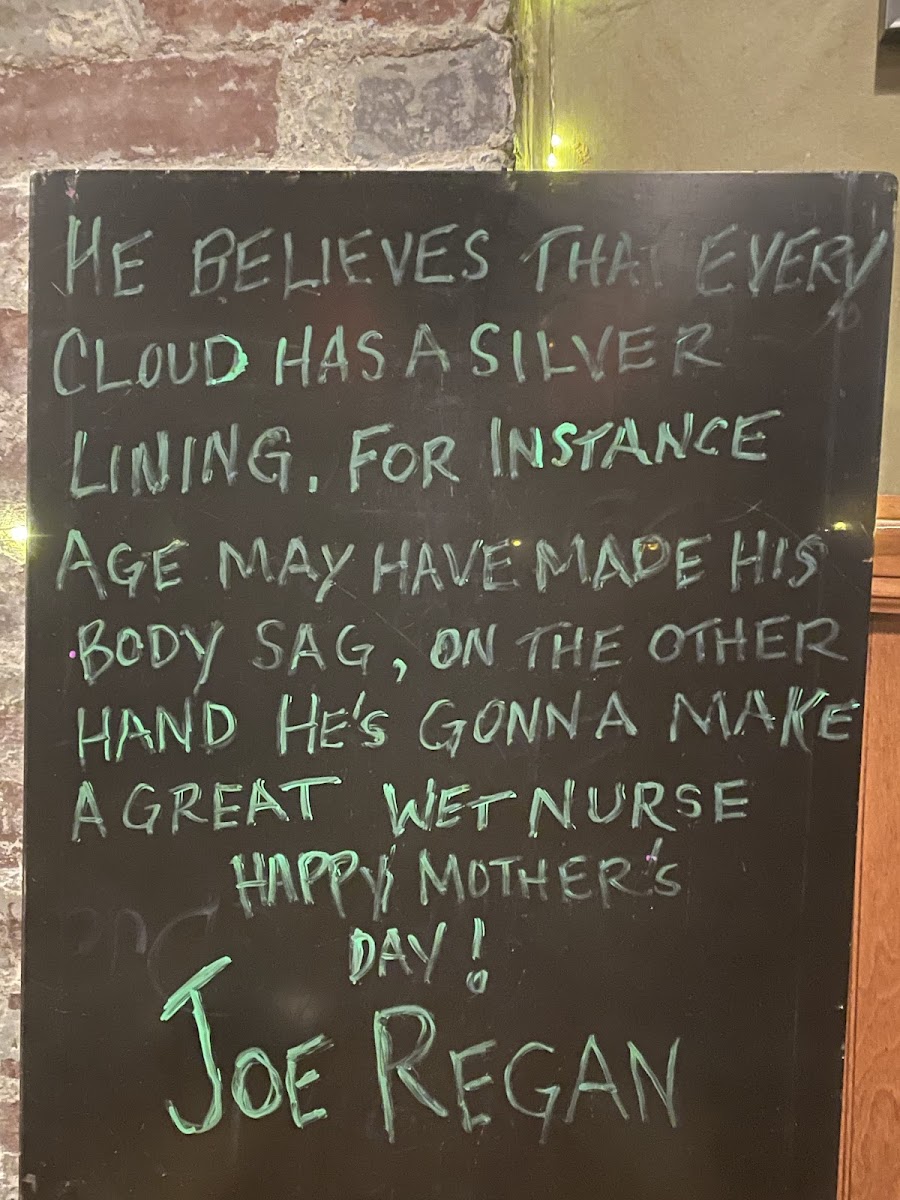 HE BELIEVES THAT EVERY
CLOUD HAS A SILVER
LINING. FOR INSTANCE
AGE MAY HAVE MADE HIS
BODY SAG, ON THE OTHER
HAND HE'S GONNA MAKE
A GREAT WET NURSE
HAPPY MOTHER'S
DAY!
JOE REGAN